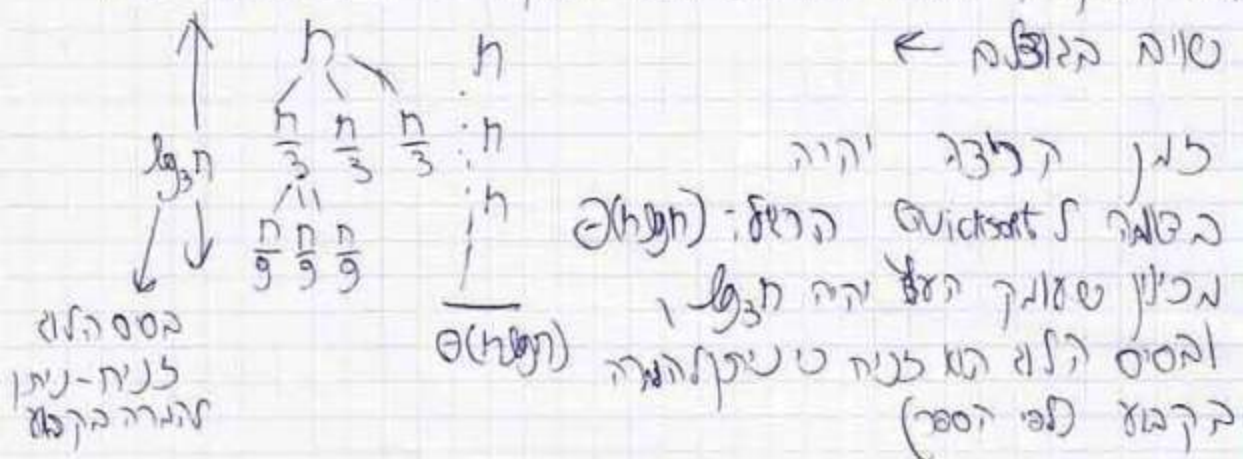 שוים בגודלם ←
זמן הריצה יהיה
בדומה ל Quicksort הרגיל: Θ(nlgn)
מכיוון שעומק העץ יהיה log₃n,
ובסיס הלוג הוא זניח כי ניתן להמרה
בקבוע (לפי הספר)
n n
n/3 n/3 n/3 n
log₃n
n/9 n/9 n/9 n
Θ(nlgn)
בסס הלוג
זניח-ניתן
להמרה בקבוע